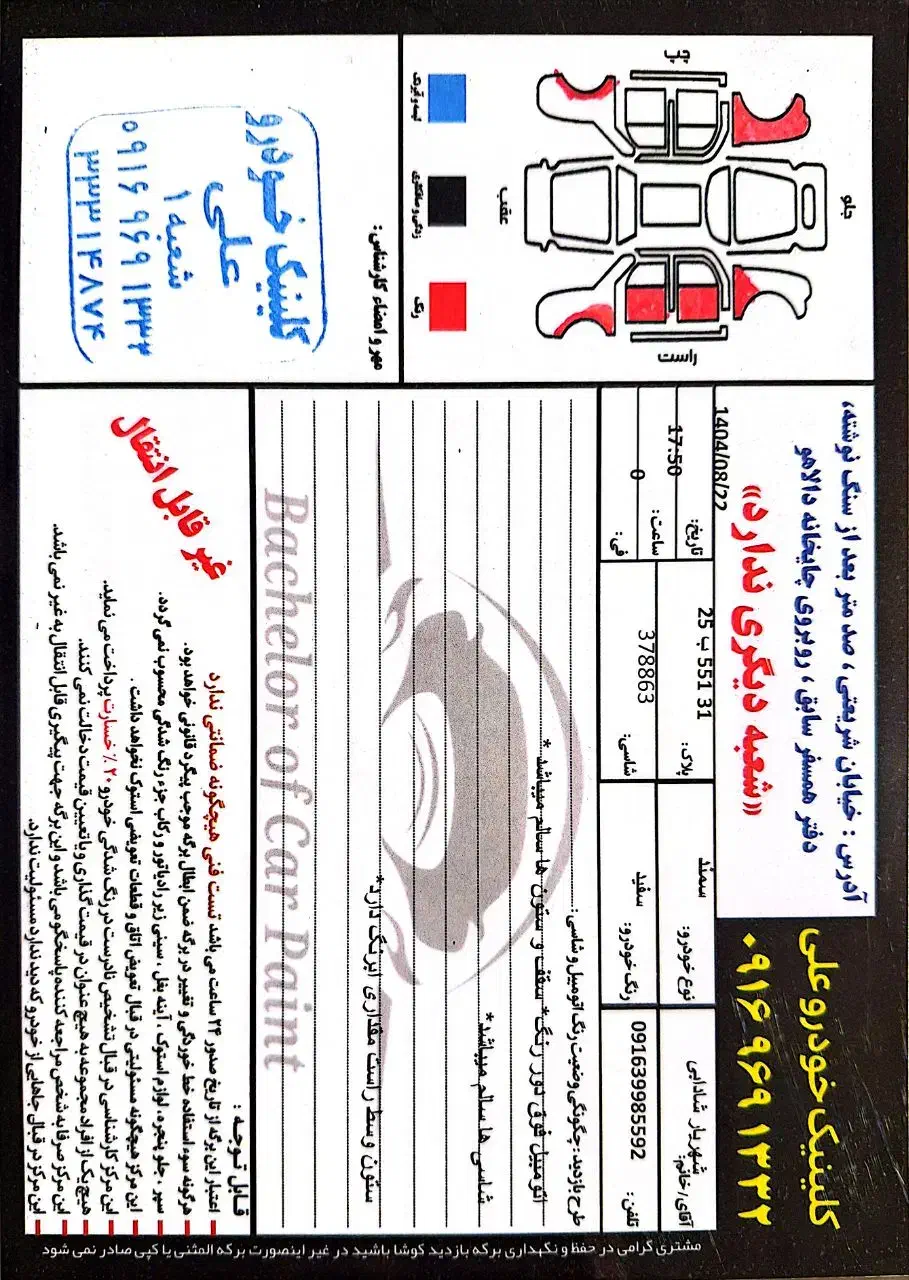 کلینیک خودرو علی
۰۹۱۶ ۹۶۹ ۱۳۳۲
آدرس : خیابان شریعتی ، صد متر بعد از سنگ نوشته،
دفتر همسفر سابق ، روبروی چایخانه دالاهو
«شعبه دیگری ندارد»
جلو
چپ
راست
عقب
رنگ
لیسه و آبرنگ
مهر و امضاء کارشناس :
کلینیک خودرو
علی
شعبه ۱
۰۹۱۶ ۹۶۹ ۱۳۳۲
۳۳۳۱۴۸۷۴
آقای/خانم: شهریار شادابی
نوع خودرو: سمند
پلاک: 25 ب 551 31
تاریخ: 1404/08/22
ساعت: 17:50
تلفن: 09163998559​2
رنگ خودرو: سفید
شاسی: 378863
فی: 0
طرح بازدید : چگونگی وضعیت رنگ اتومبیل و شاسی :
اتومبیل فوق دور رنگ* سقف و ستون ها سالم میباشد *
شاسی ها سالم میباشد*
ستون وسط راست مقداری ابرنگ دارد*
Bachelor of Car Paint
قابل توجه :
اعتبار این برگه از تاریخ صدور ۲۴ ساعت می باشد تست فنی هیچگونه ضمانتی ندارد
هرگونه سوء استفاده خط خوردگی و تغییر در برگه ضمن ابطال برگه موجب پیگرد قانونی خواهد بود.
سپر ، جلو پنجره، لوازم استوک ، آینه بغل ، سینی زیر رادیاتور و رکاب جزء رنگ شدگی محسوب نمی گردد.
این مرکز هیچگونه مسئولیتی در قبال تعویض اتاق و قطعات تعویضی استوک نخواهد داشت .
این مرکز کارشناسی در قبال تشخیص نادرست در رنگ شدگی خودرو ۲۰٪ خسارت پرداخت می نماید.
هیچ یک از افراد مجموعه به هیچ عنوان در قیمت گذاری و یا تعیین قیمت دخالت نمی کنند.
این مرکز صرفا به شخص مراجعه کننده پاسخگو می باشد و این برگه جهت پیگیری قابل انتقال به غیر نمی باشد.
این مرکز در قبال جاهایی از خودرو که دید ندارد مسئولیت ندارد.
غیر قابل انتقال
مشتری گرامی در حفظ و نگهداری برگه بازدید کوشا باشید در غیر اینصورت برگه المثنی یا کپی صادر نمی شود